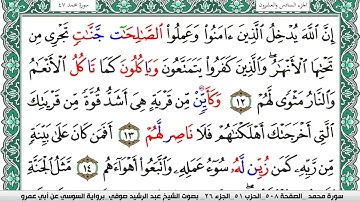 الجزء السادس والعشرون
سورة محمد ٤٧
إِنَّ اللَّهَ يُدْخِلُ الَّذِينَ ءَامَنُوا وَعَمِلُوا الصَّـٰلِحَـٰت جَّنَّـٰتٍ تَجْرِى مِن
تَحْتِهَا الْأَنْهَـٰرُ وَالَّذِينَ كَفَرُوا يَتَمَتَّعُونَ وَيَاكُلُونَ كَمَا تَاكُلُ الْأَنْعَـٰمُ
وَالنَّارُ مَثْوًى لَهُمْ ١٢ وَكَأَيِّن مِن قَرْيَةٍ هِىَ أَشَدُّ قُوَّةً مِن قَرْيَتِكَ
الَّتِى أَخْرَجَتْكَ أَهْلَكْنَـٰهُمْ فَلَا نَاصِر لَّهُمْ ١٣ أَفَمَن كَانَ عَلَىٰ بَيِّنَةٍ
مِن رَبِّهِ كَمَن زُيِّن لَّهُ سُوءُ عَمَلِهِ وَاتَّبَعُوا أَهْوَاءَهُم ١٤ مَثَلُ الْجَنَّةِ
سورة محمد _ الصفحة ٥٠٨ _ الحزب ٥١ _ الجزء ٢٦ _ بصوت الشيخ عبد الرشيد صوفي _ برواية السوسي عن أبي عمرو